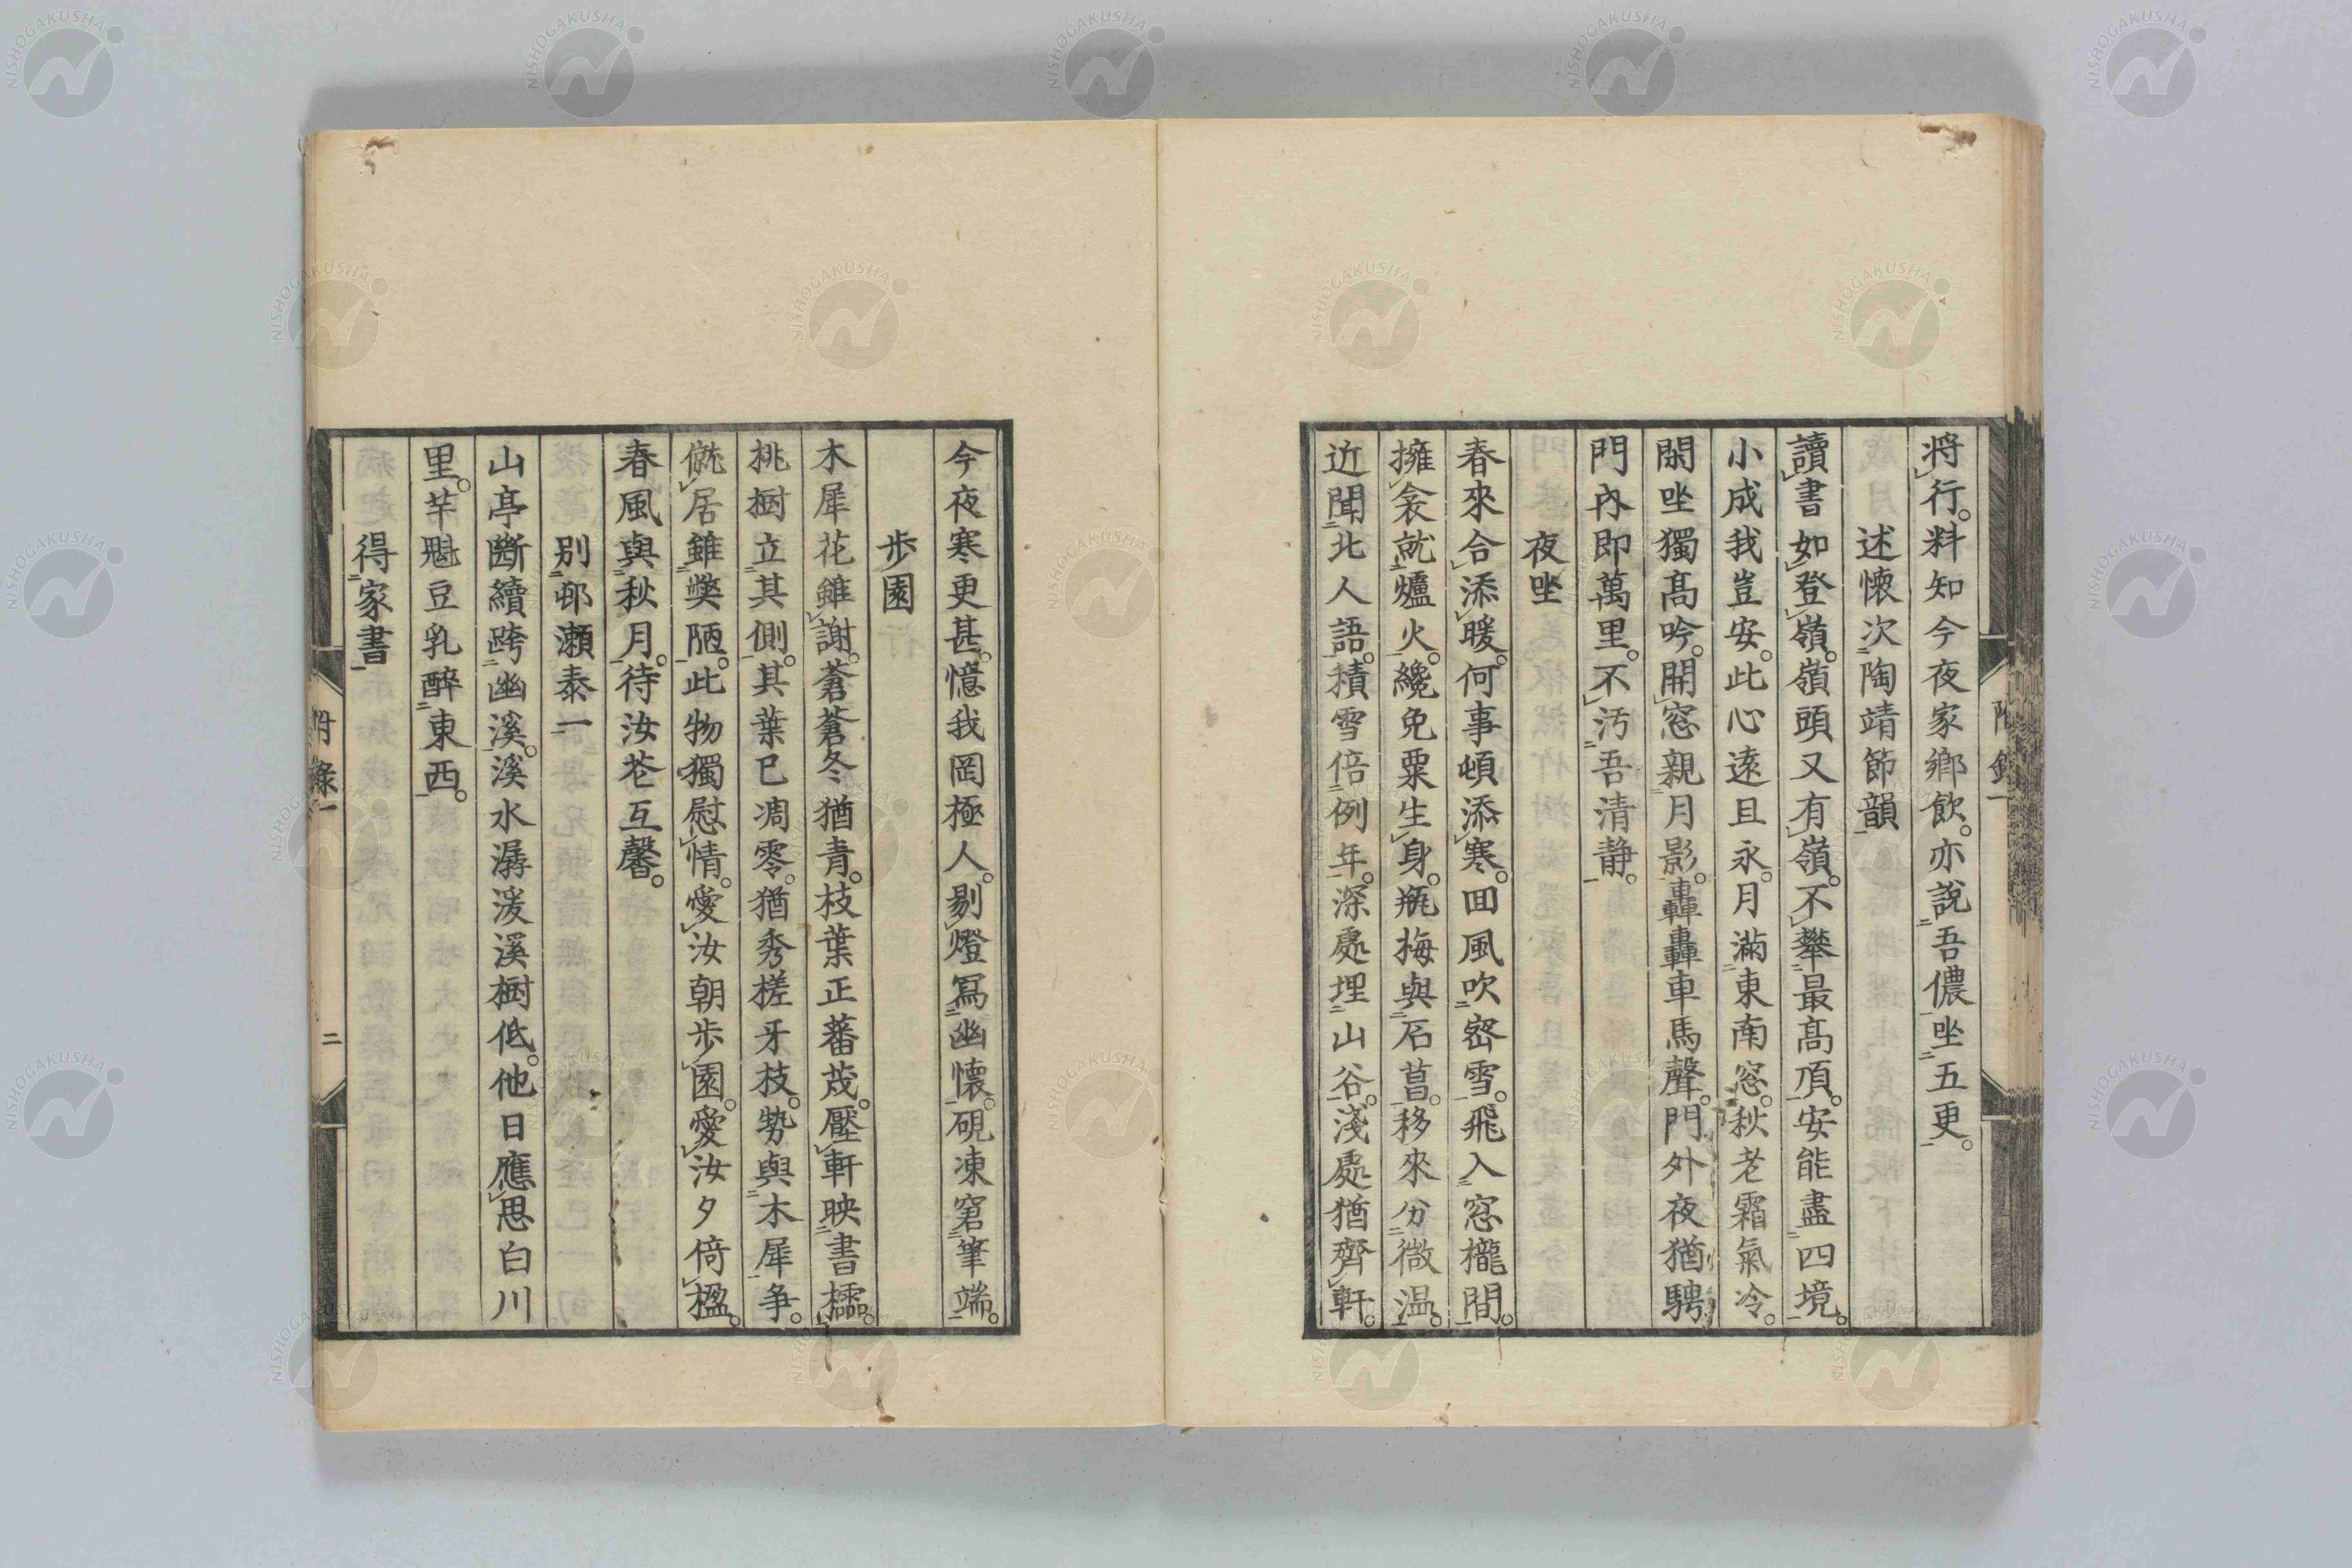 將行。料知今夜家鄉飲。亦說吾儂坐五更。
述懷次陶靖節韻
讀書如登嶺。嶺頭又有嶺。不攀最高頂。安能盡四境。
小成我豈安。此心遠且永。月滿東南窓。秋老霜氣冷。
閑坐獨高吟。開窓親月影。轟轟車馬聲。門外夜猶騁
門內即萬里。不污吾清静。
夜坐
春來合添暖。何事頓添寒。回風吹密雪。飛入窓櫳間。
擁衾就爐火。纔免粟生身。瓶梅與石菖。移來分微温。
近聞北人語。積雪倍例年。深處埋山谷。淺處猶齊軒。
今夜寒更甚。憶我罔極人。剔燈寫幽懷。硯凍窘筆端。
步園
木犀花雖謝。蒼蒼冬猶青。枝葉正蕃茂。壓軒映書櫺。
桃樹立其側。其葉已凋零。猶秀槎牙枝。勢與木犀争。
僦居雖獘陋。此物獨慰情。愛汝朝步園。愛汝夕倚楹。
春風與秋月。待汝花互馨。
别邨瀬泰一
山亭斷續跨幽溪。溪水潺湲溪樹低。他日應思白川
里。芋魁豆乳醉東西。
得家書
附錄一
二
附錄一
NISHOGAKUSHA